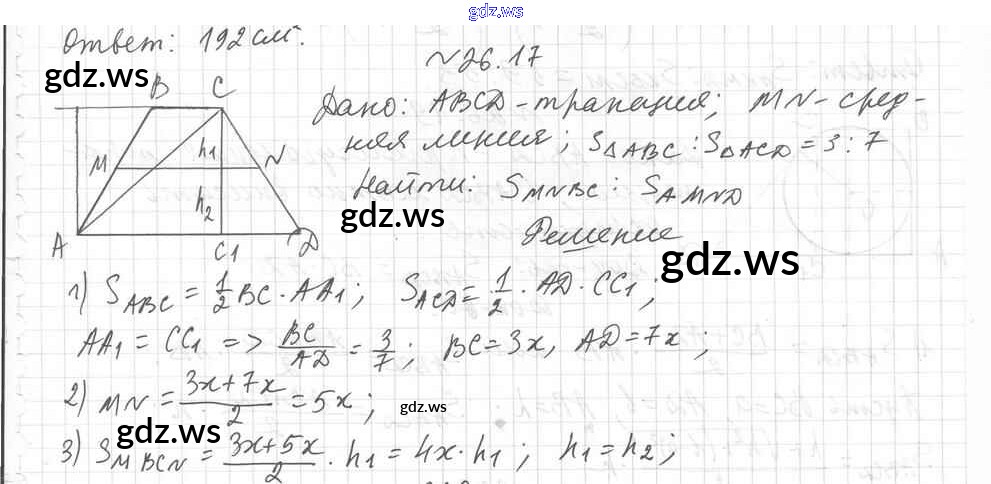 gdz.ws
Ответ: 192 см².
gdz.ws
№26.17
B C
Дано: ABCD - трапеция; MN - сред-
няя линия; S△ABC : S△ACD = 3 : 7
M h1 N
Найти: SMNBC : SAMND
h2
gdz.ws
Решение
A C1 D
gdz.ws
1) SABC = 1/2 BC · AA1; SACD = 1/2 · AD · CC1;
AA1 = CC1 => BC/AD = 3/7; BC = 3x, AD = 7x;
2) MN = (3x+7x)/2 = 5x;
gdz.ws
gdz.ws
3) SMBCN = (3x+5x)/2 · h1 = 4x · h1; h1 = h2;